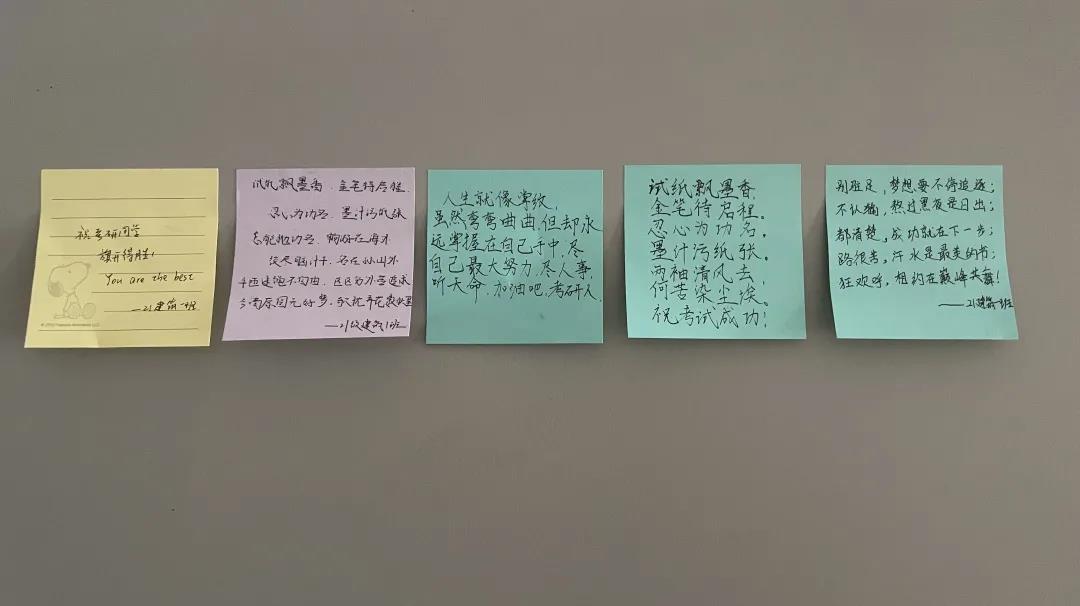 祝考研同学
旗开得胜!
You are the best
—21建筑一班
试纸飘墨香.金笔待启程.
忍心为功名.墨计污纸张
—21级建筑1班
人生就像掌纹,
虽然弯弯曲曲,但却永
远掌握在自己手中,尽
自己最大努力,尽人事,
听天命.加油吧,考研人.
试纸飘墨香,
金笔待启程。
忍心为功名。
墨计污纸张。
两袖清风去,
何苦染尘埃。
祝考试成功!
别驻足,梦想要不停追逐;
不认输,熬过黑夜是日出;
都清楚,成功就在下一步;
路很苦,汗水是最美的书;
狂欢呼,相约在巅峰共舞!
—21建筑一班